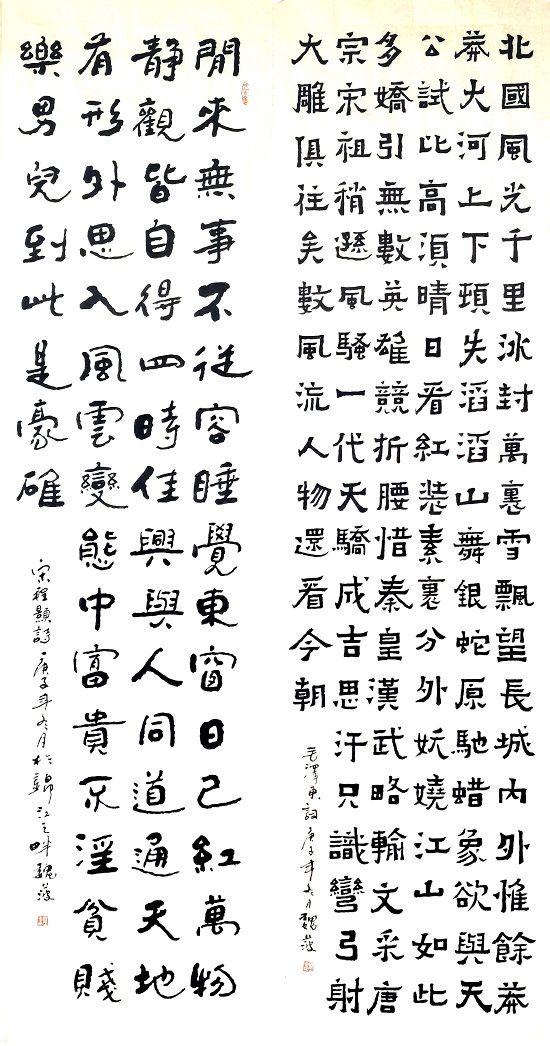 北國風光千里冰封萬裏雪飄望長城内外惟餘莽
莽大河上下頓失滔滔山舞銀蛇原馳蜡象欲與天
公試比高須晴日看紅裝素裹分外妖嬈江山如此
多嬌引無數英雄競折腰惜秦皇漢武略輸文采唐
宗宋祖稍遜風騷一代天驕成吉思汗只識彎弓射
大雕俱往矣數風流人物還看今朝
毛澤東詞庚子年冬月魏
閒來無事不從容睡覺東窗日已紅萬物
靜觀皆自得四時佳興與人同道通天地
有形外思入風雲變態中富貴不淫貧賤
樂男兒到此是豪雄
宋程顥詩庚子年冬月於錦江之畔魏